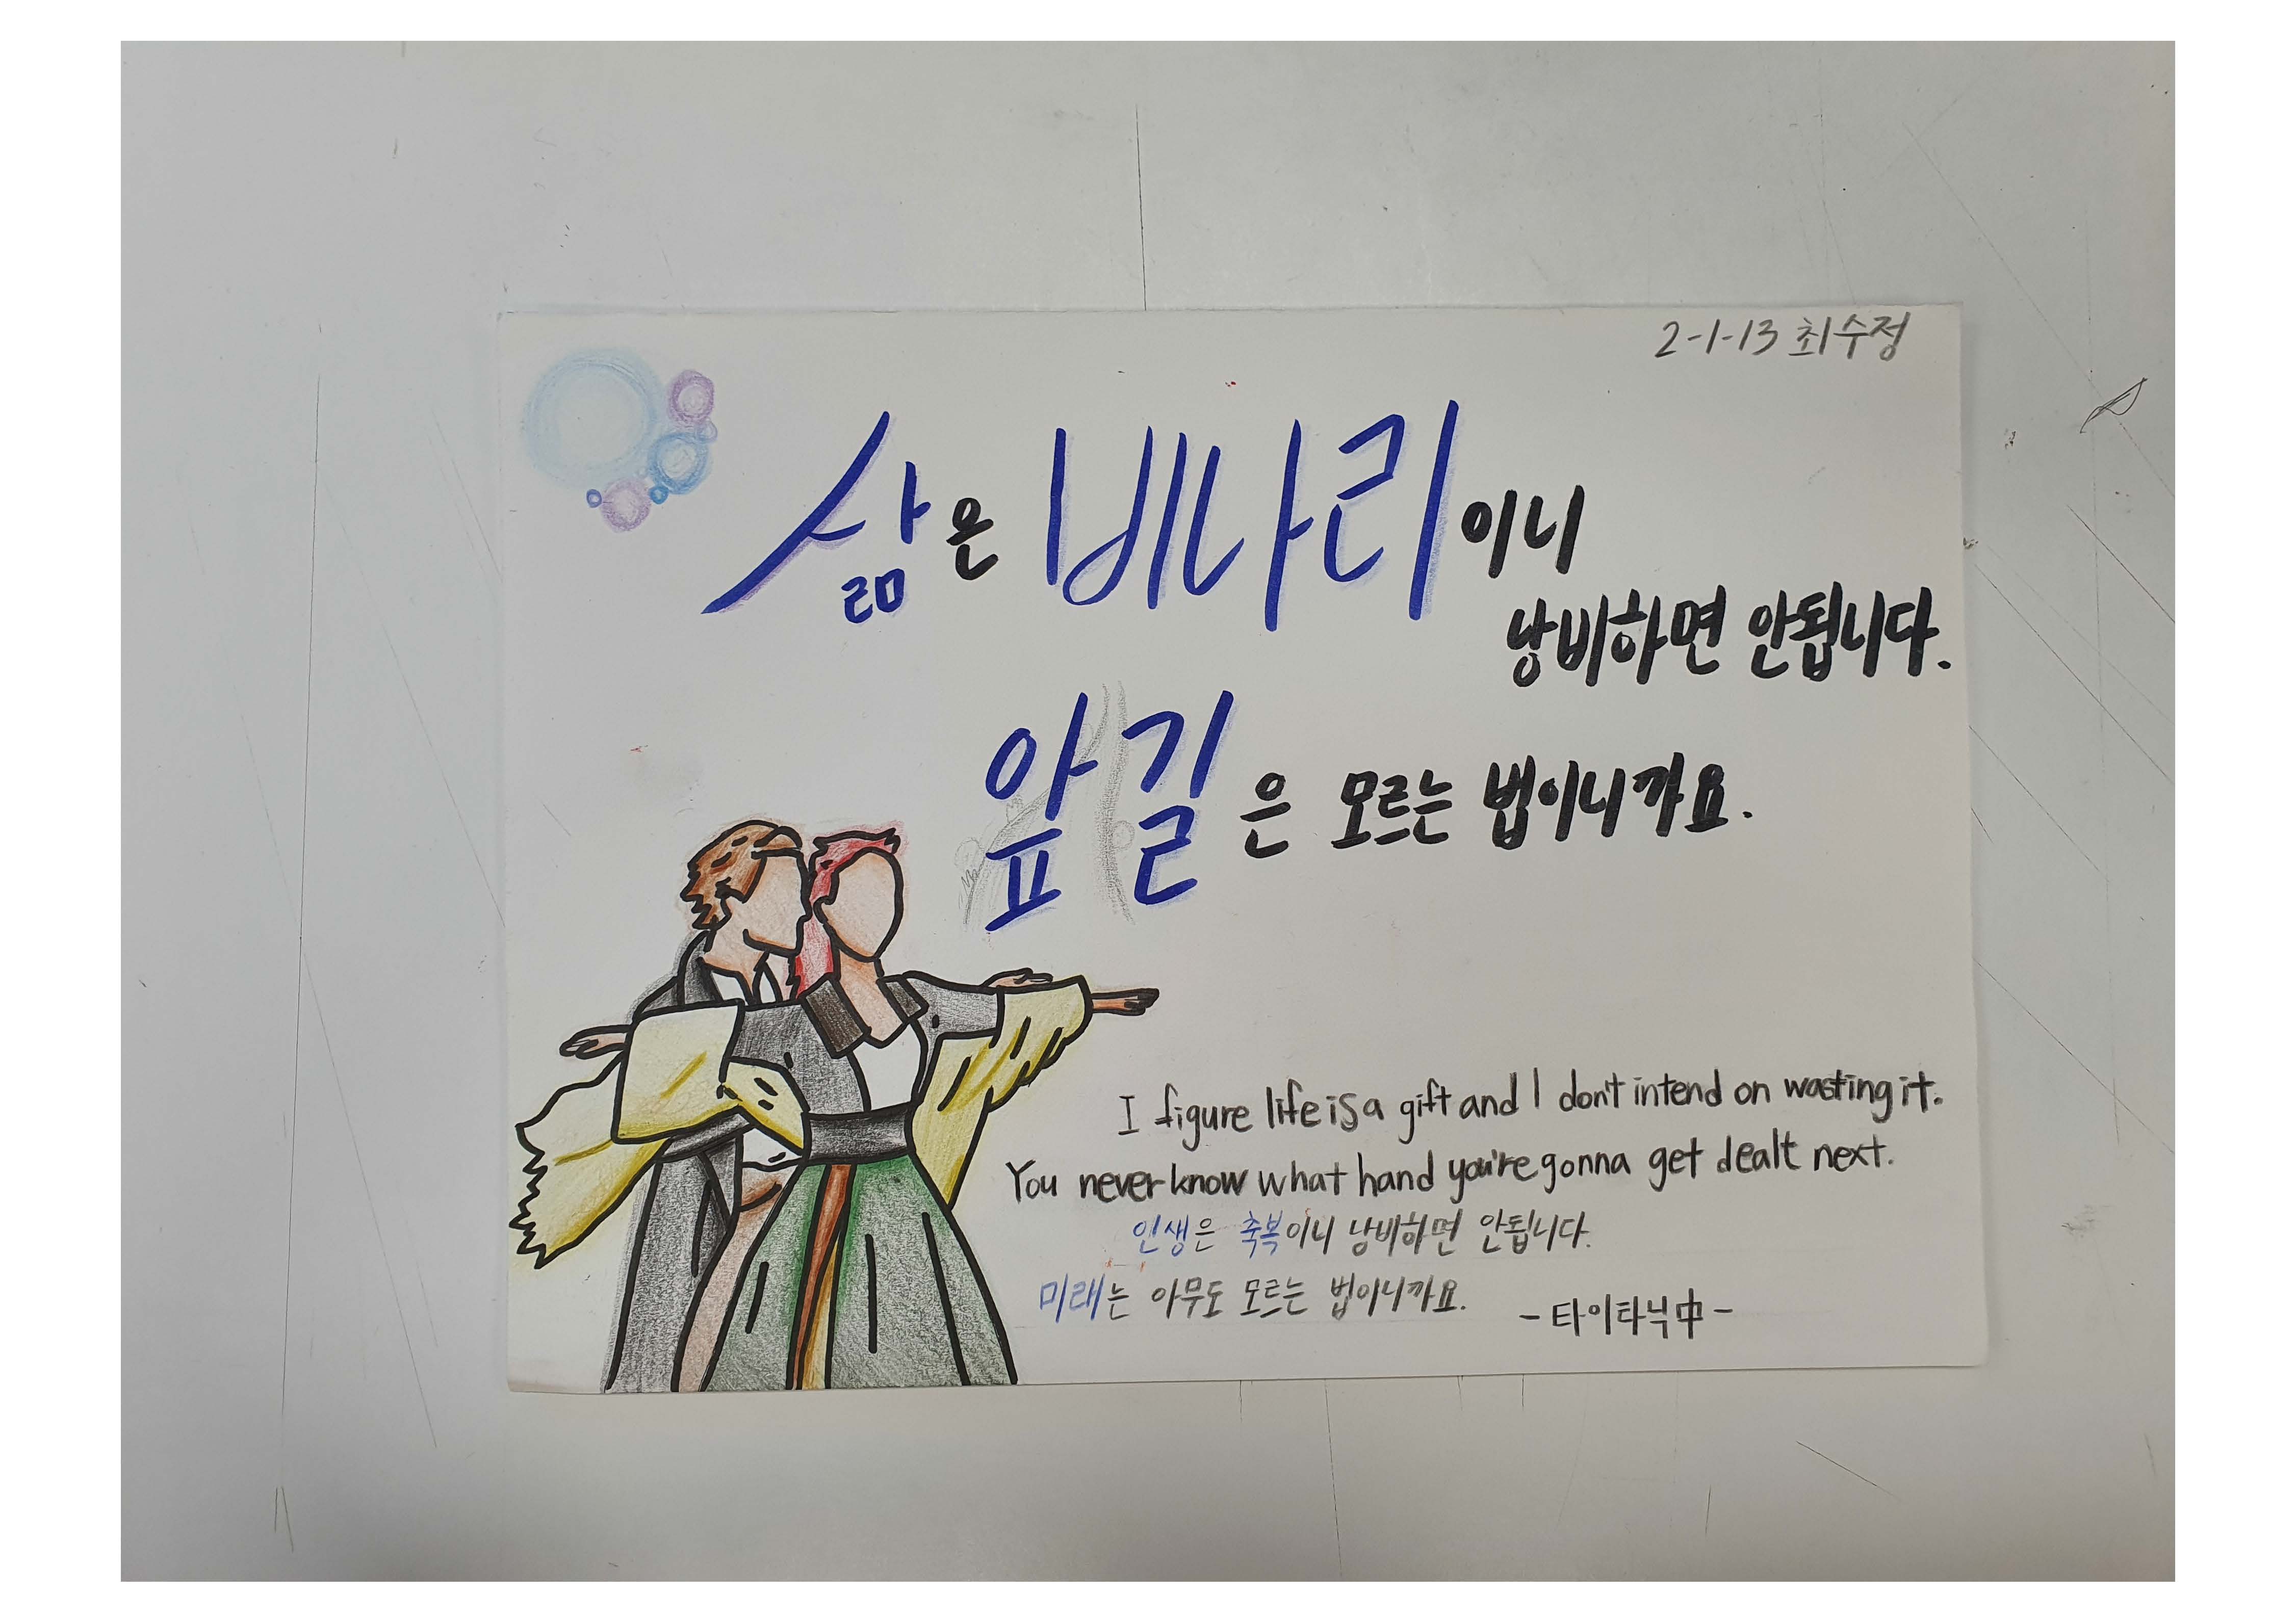 2-1-13 최수정
삶은 비나리이니
낭비하면 안됩니다.
앞길은 모르는 법이니까요.
I figure life is a gift and I don't intend on wasting it.
You never know what hand you're gonna get dealt next.
인생은 축복이니 낭비하면 안됩니다.
미래는 아무도 모르는 법이니까요.
-타이타닉中-